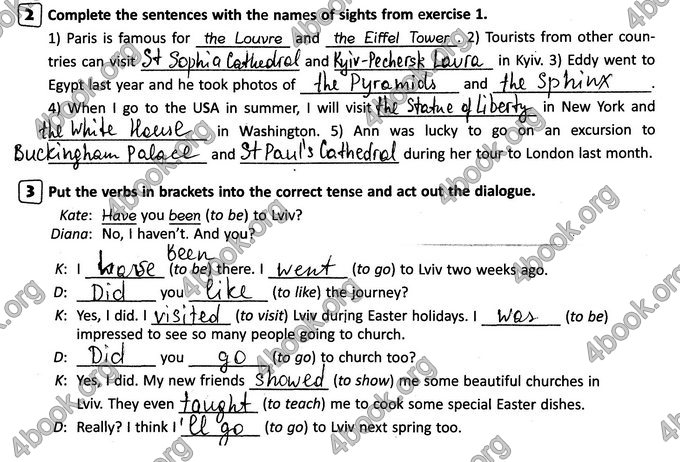 2 Complete the sentences with the names of sights from exercise 1.
1) Paris is famous for the Louvre and the Eiffel Tower. 2) Tourists from other coun-
tries can visit St Sophia Cathedral and Kyiv-Pechersk Lavra in Kyiv. 3) Eddy went to
Egypt last year and he took photos of the Pyramids and the Sphinx.
4) When I go to the USA in summer, I will visit the Statue of Liberty in New York and
the White House in Washington. 5) Ann was lucky to go on an excursion to
Buckingham Palace and St Paul's Cathedral during her tour to London last month.
3 Put the verbs in brackets into the correct tense and act out the dialogue.
Kate: Have you been (to be) to Lviv?
Diana: No, I haven't. And you?
been
K: I have (to be) there. I went (to go) to Lviv two weeks ago.
D: Did you like (to like) the journey?
K: Yes, I did. I visited (to visit) Lviv during Easter holidays. I was (to be)
impressed to see so many people going to church.
D: Did you go (to go) to church too?
K: Yes, I did. My new friends showed (to show) me some beautiful churches in
Lviv. They even taught (to teach) me to cook some special Easter dishes.
D: Really? I think I'll go (to go) to Lviv next spring too.
4book.org